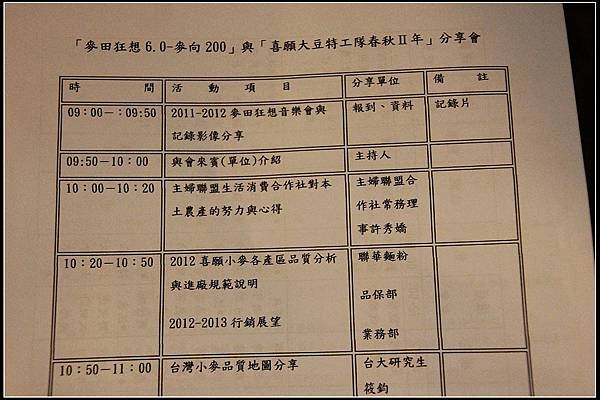 「麥田狂想 6.0-麥向 200」與「喜願大豆特工隊春秋Ⅱ年」分享會
時 間 活 動 項 目 分享單位 備 註
09:00-:09:50 2011-2012 麥田狂想音樂會與 報到、資料 記錄片
記錄影像分享
09:50-10:00 與會來賓(單位)介紹 主持人
10:00-10:20 主婦聯盟生活消費合作社對本 主婦聯盟合
土農產的努力與心得 作社常務理
事許秀嬌
10:20-10:50 2012 喜願小麥各產區品質分析 聯華麵粉
與進廠規範說明 品保部
2012-2013 行銷展望 業務部
10:50-11:00 台灣小麥品質地圖分享 台大研究生
筱鈞